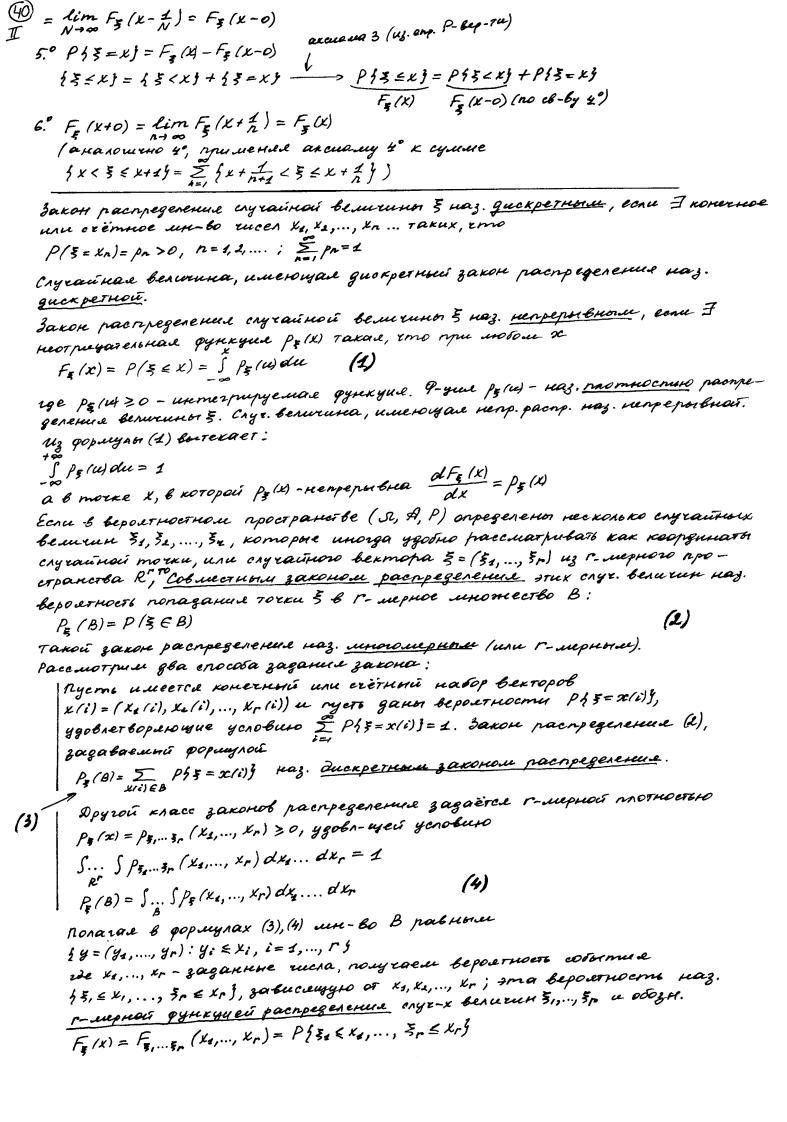 40
II
= lim_{N→∞} F_ξ(x - 1/N) = F_ξ(x-0)
аксиома 3 (из. опр. P-вер-ти)
5.° P{ξ=x} = F_ξ(x) - F_ξ(x-0)
{ξ≤x} = {ξ<x} + {ξ=x} ⟶ P{ξ≤x} = P{ξ<x} + P{ξ=x}
F_ξ(x) F_ξ(x-0) (по св-ву 4°)
6.° F_ξ(x+0) = lim_{n→∞} F_ξ(x + 1/n) = F_ξ(x)
(аналогично 4°, применяя аксиому 4° к сумме
{x < ξ ≤ x+1} = ∑_{n=1}^{∞} {x + 1/(n+1) < ξ ≤ x + 1/n})
Закон распределения случайной величины ξ наз. дискретным, если ∃ конечное
или счётное мн-во чисел x₁, x₂, ..., xₙ ... таких, что
P(ξ=xₙ) = pₙ > 0, n=1,2,.... ; ∑_{n=1}^{∞} pₙ = 1
Случайная величина, имеющая дискретный закон распределения наз.
дискретной.
Закон распределения случайной величины ξ наз. непрерывным, если ∃
неотрицательная функция p_ξ(x) такая, что при любом x
F_ξ(x) = P(ξ ≤ x) = ∫_{-∞}^{x} p_ξ(u)du (1)
где p_ξ(u) ≥ 0 - интегрируемая функция. Ф-ция p_ξ(u) - наз. плотностью распре-
деления величины ξ. Случ. величина, имеющая непр. распр. наз. непрерывной.
Из формулы (1) вытекает:
∫_{-∞}^{+∞} p_ξ(u)du = 1
а в точке x, в которой p_ξ(x) - непрерывна dF_ξ(x)/dx = p_ξ(x)
Если в вероятностном пространстве (Ω, A, P) определены несколько случайных
величин ξ₁, ξ₂, ...., ξ_r, которые иногда удобно рассматривать как координаты
случайной точки, или случайного вектора ξ = (ξ₁, ..., ξ_r) из r-мерного про-
странства R^r, то Совместным законом распределения этих случ. величин наз.
вероятность попадания точки ξ в r-мерное множество B:
P_ξ(B) = P(ξ ∈ B) (2)
Такой закон распределения наз. многомерным (или r-мерным).
Рассмотрим два способа задания закона:
Пусть имеется конечный или счётный набор векторов
x(i) = (x₁(i), x₂(i), ..., x_r(i)) и пусть даны вероятности P{ξ=x(i)},
удовлетворяющие условию ∑_{i=1}^{∞} P{ξ=x(i)} = 1. Закон распределения (2),
задаваемый формулой
P_ξ(B) = ∑_{x(i)∈B} P{ξ=x(i)} наз. дискретным законом распределения.
(3)
Другой класс законов распределения задаётся r-мерной плотностью
p_ξ(x) = p_{ξ₁...ξ_r}(x₁, ..., x_r) ≥ 0, удовл-щей условию
∫...∫_{R^r} p_{ξ₁...ξ_r}(x₁, ..., x_r) dx₁... dx_r = 1
P_ξ(B) = ∫...∫_B p_ξ(x₁, ..., x_r) dx₁.... dx_r (4)
Полагая в формулах (3), (4) мн-во B равным
{y = (y₁, ...., y_r) : y_i ≤ x_i, i=1, ..., r}
где x₁, ..., x_r - заданные числа, получаем вероятность события
{ξ₁ ≤ x₁, ..., ξ_r ≤ x_r}, зависящую от x₁, x₂, ..., x_r ; эта вероятность наз.
r-мерной функцией распределения случ-х величин ξ₁, .., ξ_r и обозн.
F_ξ(x) = F_{ξ₁...ξ_r}(x₁, ..., x_r) = P{ξ₁ ≤ x₁, ..., ξ_r ≤ x_r}